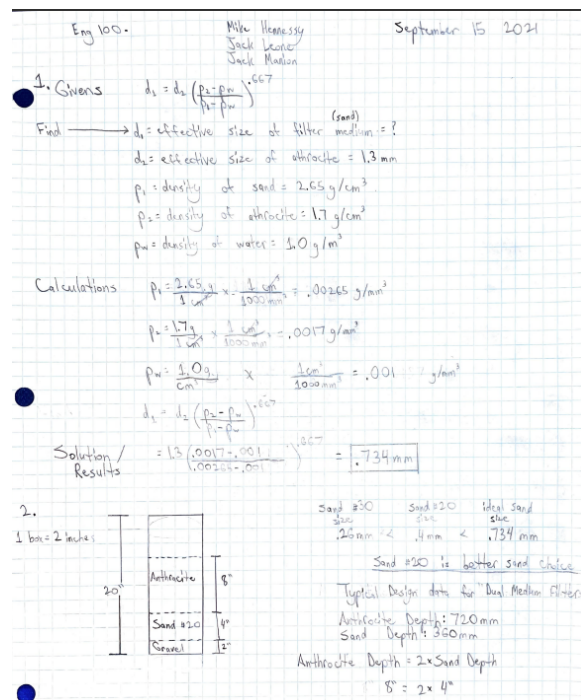 Eng 100.
Mike Hennessy
Jack Leoner
Jack Manion
September 15 2021
1. Givens d₁ = d₂ (p₂-pw / p₁-pw)^.667
(sand)
Find → d₁ = effective size of filter medium = ?
d₂ = effective size of athrocite = 1.3 mm
p₁ = density of sand = 2.65 g/cm³
p₂ = density of athrocite = 1.7 g/cm³
pw = density of water = 1.0 g/m³
Calculations p₁ = 2.65 g / 1 cm³ x 1 cm³ / 1000 mm³ = .00265 g/mm³
p₂ = 1.7g / 1 cm³ x 1 cm³ / 1000 mm³ = .0017 g/mm³
pw = 1.0g / cm³ x 1 cm³ / 1000 mm³ = .001 g/mm³
d₁ = d₂ (p₂-pw / p₁-pw)^.667
Solution/
Results
= 1.3 (.0017-.001 / .00265-.001)^.667 = .734 mm
2.
1 box = 2 inches
20"
Anthracite 8"
Sand #20 4"
Gravel 2"
Sand #30 sand #20 ideal sand
size size size
.26 mm < .4 mm < .734 mm
Sand #20 is better sand choice
Typical Design data for "Dual Medium Filters
Anthrocite Depth: 720 mm
Sand Depth: 360 mm
Anthrocite Depth = 2 x Sand Depth
8" = 2 x 4"